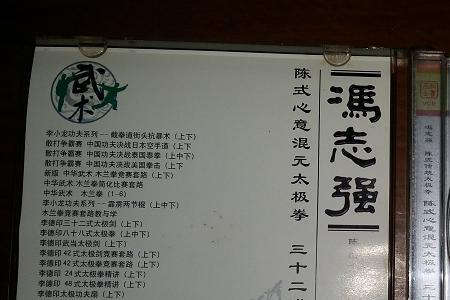 武术
李小龙功夫系列--截拳道街头抗暴术(上下)
散打争霸赛 中国功夫决战日本空手道(上下)
散打争霸赛 中国功夫决战泰国泰拳(上中下)
散打争霸赛 中国功夫决战美国拳击(上下)
新版 中华武术 木兰拳竞赛套路(上下)
中华武术 木兰拳简化比赛套路
中华武术 木兰拳(1-6)
李小龙功夫系列--霹雳两节棍(上中下)
木兰拳竞赛套路教与学
李德印三十二式太极剑(上下)
李德印八十八式太极拳(上中下)
李德印武当太极剑(上下)
李德印42式太极剑竞赛套路(上下)
李德印42式太极拳竞赛套路(上下)
李德印 24式太极拳精讲(上下)
李德印 48式太极拳精讲(上下)
李德印太极功夫扇(上下)
陈式心意混元太极拳 三十二
冯志强
陈
VCD
冯志强 陈式传统太极拳
陈式心意混元太极拳 三十二